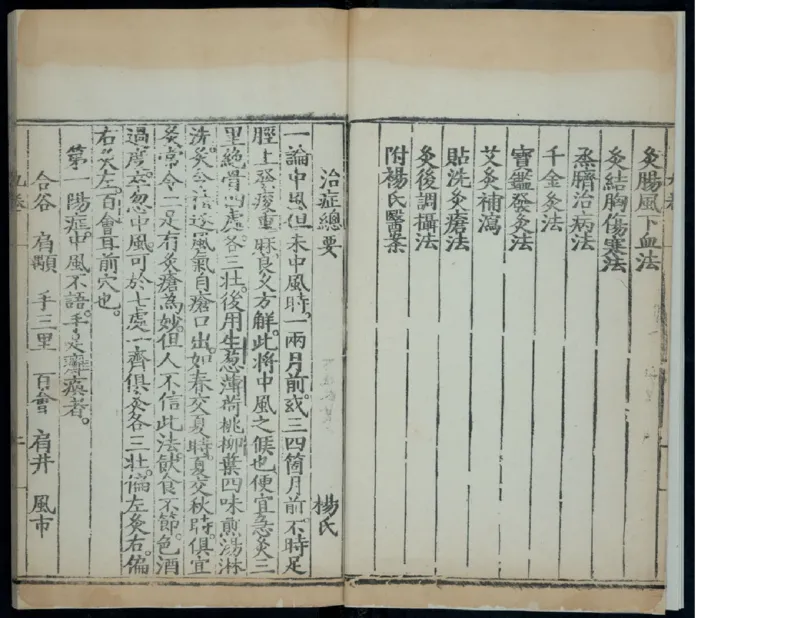 灸腸風下血法
灸結胸傷寒法
蒸臍治病法
千金灸法
寶鑑發灸法
艾灸補瀉
貼洗灸瘡法
灸後調攝法
附楊氏醫案
治症總要 楊氏
一論中風但未中風時。一兩月前。或三四箇月前。不時足
脛上發痠重麻。良久方解。此將中風之候也。便宜急灸三
里絶骨四處。各三壯。後用生葱薄荷桃柳葉四味煎湯淋
洗。灸令祛逐風氣自瘡口出。如春交夏時。夏交秋時。俱宜
灸。常令二足有灸瘡為妙。但人不信此法。飲食不節。色酒
過度。卒忽中風。可於七處一齊俱灸各三壯。偏左灸右。偏
右灸左。百會耳前穴也。
第一陽症。中風不語。手足癱瘓者。
合谷 肩髃 手三里 百會 肩井 風市